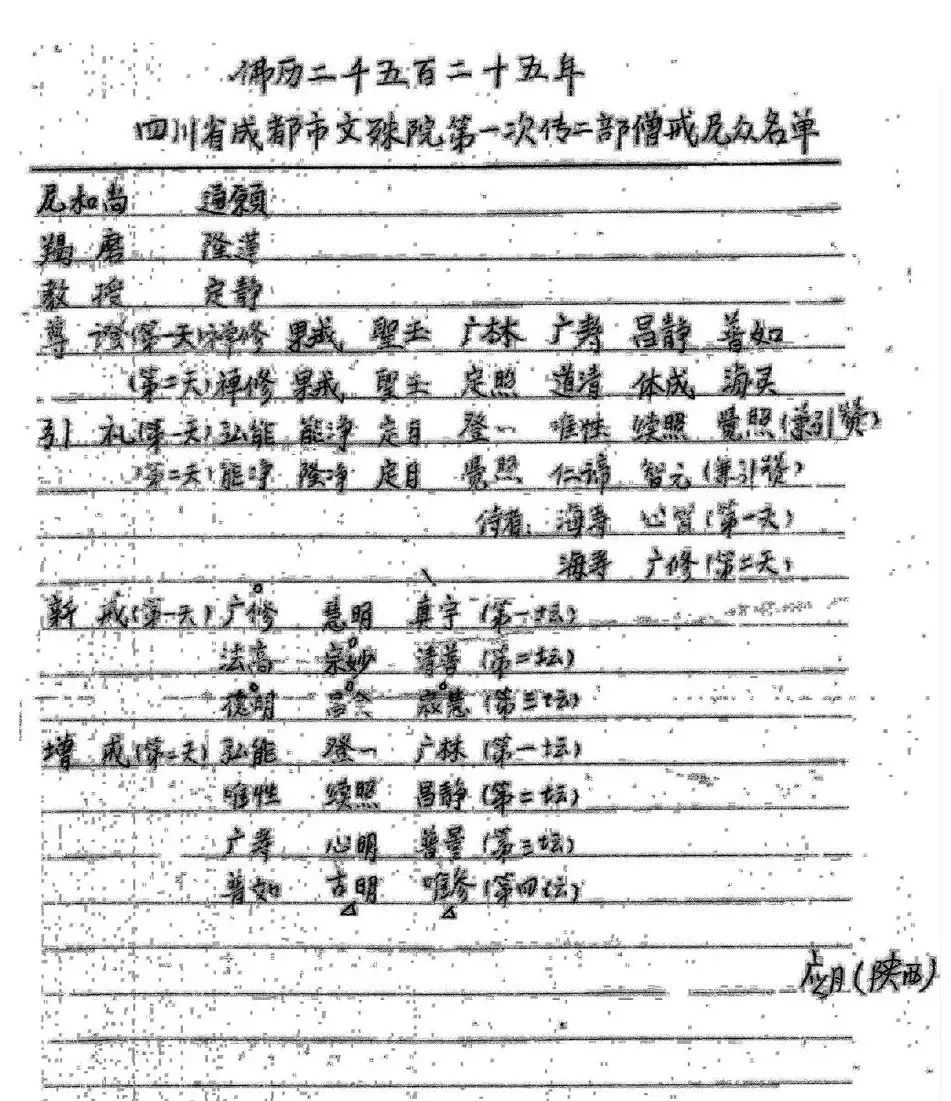 佛历二千五百二十五年
四川省成都市文殊院第一次传二部僧戒尼众名单
尼和尚 通願
羯磨 隆莲
教授 定静
尊證(第一天)禅修 果戒 聖玉 广林 广寿 昌静 普如
(第二天)禅修 果戒 聖玉 定照 道清 体成 海灵
引礼(第一天)弘能 能净 定目 登一 唯性 续照 覺照(兼引赞)
(第二天)能净 隆净 定目 覺照 仁谛 智元(兼引赞)
侍者: 海寿 心 (第一天)
海寿 广修(第二天)
新戒(第一天)广修 慧明 真宇(第一坛)
法高 宗妙 清善(第二坛)
德明 寂慧(第三坛)
增戒(第二天)弘能 登一 广林(第一坛)
唯性 续照 昌静(第二坛)
广寿 心明 普量(第三坛)
普如 古明 唯参(第四坛)
应月(陕西)